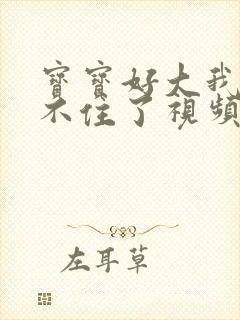 寶寶好大我
不住了視頻
左耳草